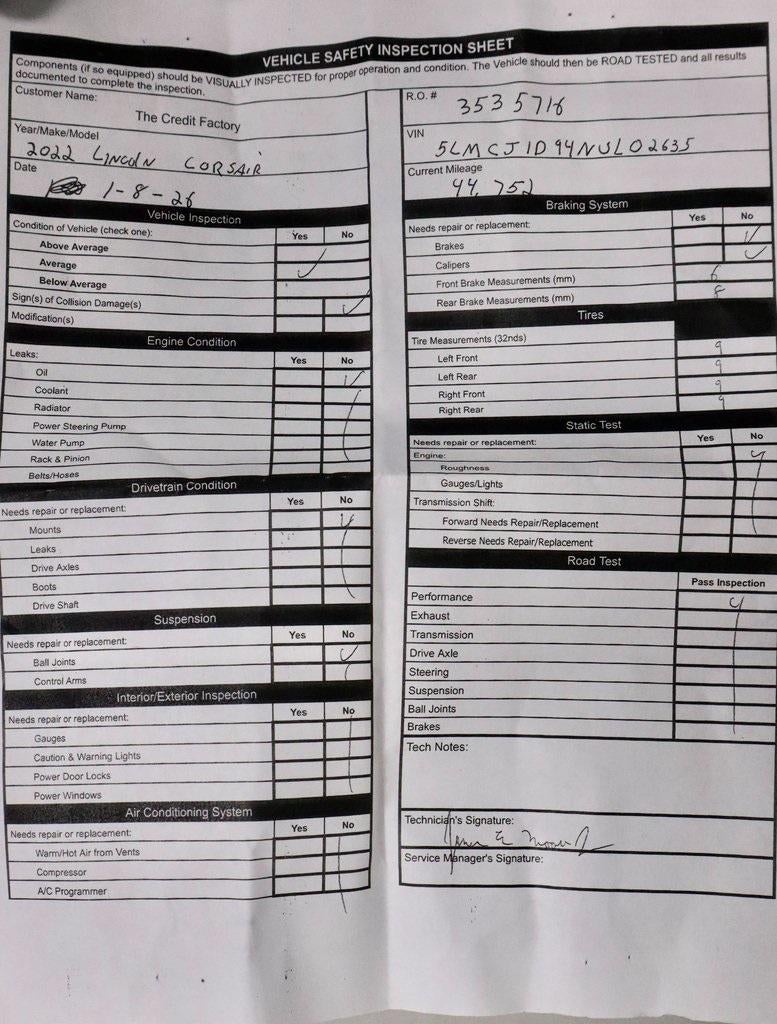 VEHICLE SAFETY INSPECTION SHEET
Components (if so equipped) should be VISUALLY INSPECTED for proper operation and condition. The Vehicle should then be ROAD TESTED and all results
documented to complete the inspection.
Customer Name:
The Credit Factory
Year/Make/Model
2022 LINCOLN CORSAIR
Date
1-8-26
Vehicle Inspection
Condition of Vehicle (check one): Yes No
Above Average
Average ✓
Below Average
Sign(s) of Collision Damage(s) ✓
Modification(s)
Engine Condition
Leaks: Yes No
Oil ✓
Coolant
Radiator
Power Steering Pump
Water Pump
Rack & Pinion
Belts/Hoses
Drivetrain Condition
Needs repair or replacement: Yes No
Mounts ✓
Leaks
Drive Axles
Boots
Drive Shaft
Suspension
Needs repair or replacement: Yes No
Ball Joints ✓
Control Arms
Interior/Exterior Inspection
Needs repair or replacement: Yes No
Gauges
Caution & Warning Lights
Power Door Locks
Power Windows
Air Conditioning System
Needs repair or replacement: Yes No
Warm/Hot Air from Vents
Compressor
A/C Programmer
R.O. # 3535716
VIN
5LMCJ1D94NUL02635
Current Mileage
44,752
Braking System
Needs repair or replacement: Yes No
Brakes ✓
Calipers ✓
Front Brake Measurements (mm) 6
Rear Brake Measurements (mm) 8
Tires
Tire Measurements (32nds)
Left Front 9
Left Rear 9
Right Front 9
Right Rear 9
Static Test
Needs repair or replacement: Yes No
Engine: ✓
Roughness
Gauges/Lights
Transmission Shift:
Forward Needs Repair/Replacement
Reverse Needs Repair/Replacement
Road Test
Pass Inspection
Performance ✓
Exhaust
Transmission
Drive Axle
Steering
Suspension
Ball Joints
Brakes
Tech Notes:
Technician's Signature:
Service Manager's Signature: